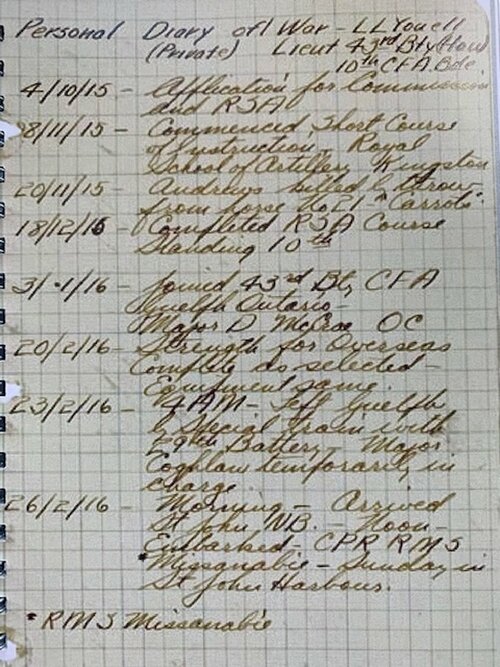 Personal Diary of War - LL Youell
(Private) Lieut 43rd Bty How
10th CFA Bde
4/10/15 - Application for Commission
and RSA
8/11/15 - Commenced Short Course
of Instruction - Royal
School of Artillery Kingston
20/11/15 - Andrews killed by throw
from horse No 21 "Carrots"
18/12/15 - Completed RSA Course
Standing 10th
3/1/16 - Joined 43rd Bty CFA
Guelph Ontario
Major D McCrae OC
20/2/16 - Strength for Overseas
Complete as selected -
Equipment same.
23/2/16 - 4 AM - Left Guelph
by Special train with
29th Battery - Major
Coghlan temporarily in
charge.
26/2/16 - Morning - Arrived
St John NB. - Noon -
Embarked - CPR RMS
*Missanabie - Sunday in
St John Harbour.
* RMS Missanabie